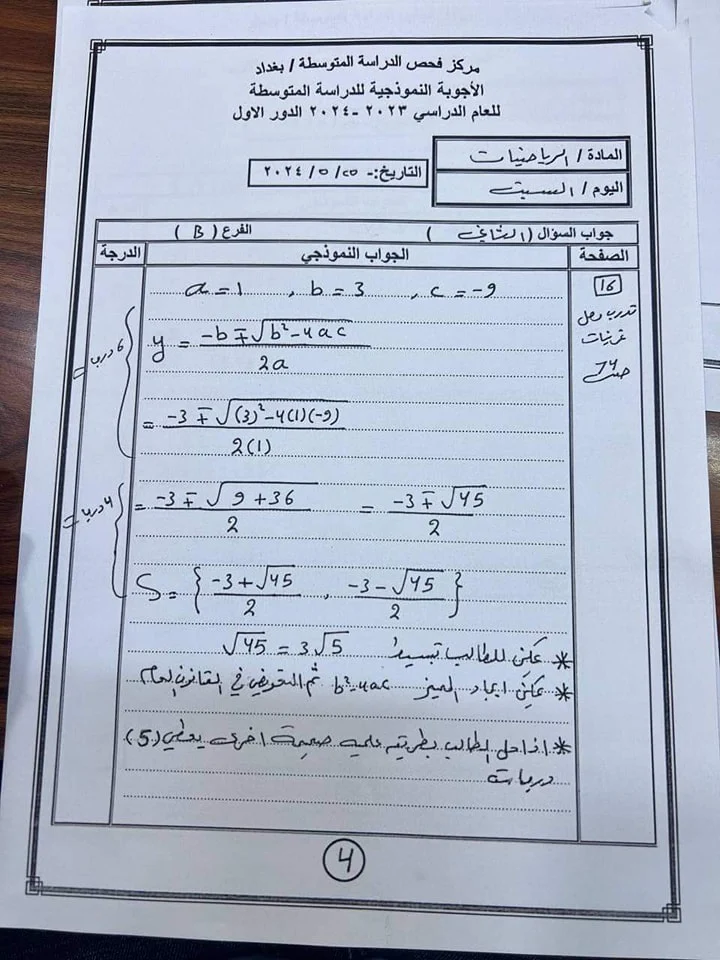 مركز فحص الدراسة المتوسطة / بغداد
الأجوبة النموذجية للدراسة المتوسطة
للعام الدراسي ٢٠٢٣ -٢٠٢٤ الدور الاول
المادة / الرياضيات
اليوم / السبت
التاريخ:- ٢٥ / ٥ / ٢٠٢٤
جواب السؤال (الثاني) الفرع ( B )
الصفحة الجواب النموذجي الدرجة
16
تمرينات
ص 74
a = 1 , b = 3 , c = -9
y = (-b ∓ √(b² - 4ac)) / 2a
6 درجات
= (-3 ∓ √((3)² - 4(1)(-9))) / 2(1)
= (-3 ∓ √(9 + 36)) / 2 = (-3 ∓ √45) / 2
4 درجات
S = { (-3 + √45) / 2 , (-3 - √45) / 2 }
* يمكن للطالب تبسيط √45 = 3√5
* يمكن ايجاد المميز b² - 4ac ثم التعويض في القانون العام
* اذا حل الطالب بطريقة علمية صحيحة اخرى يعطى (5)
درجات
4